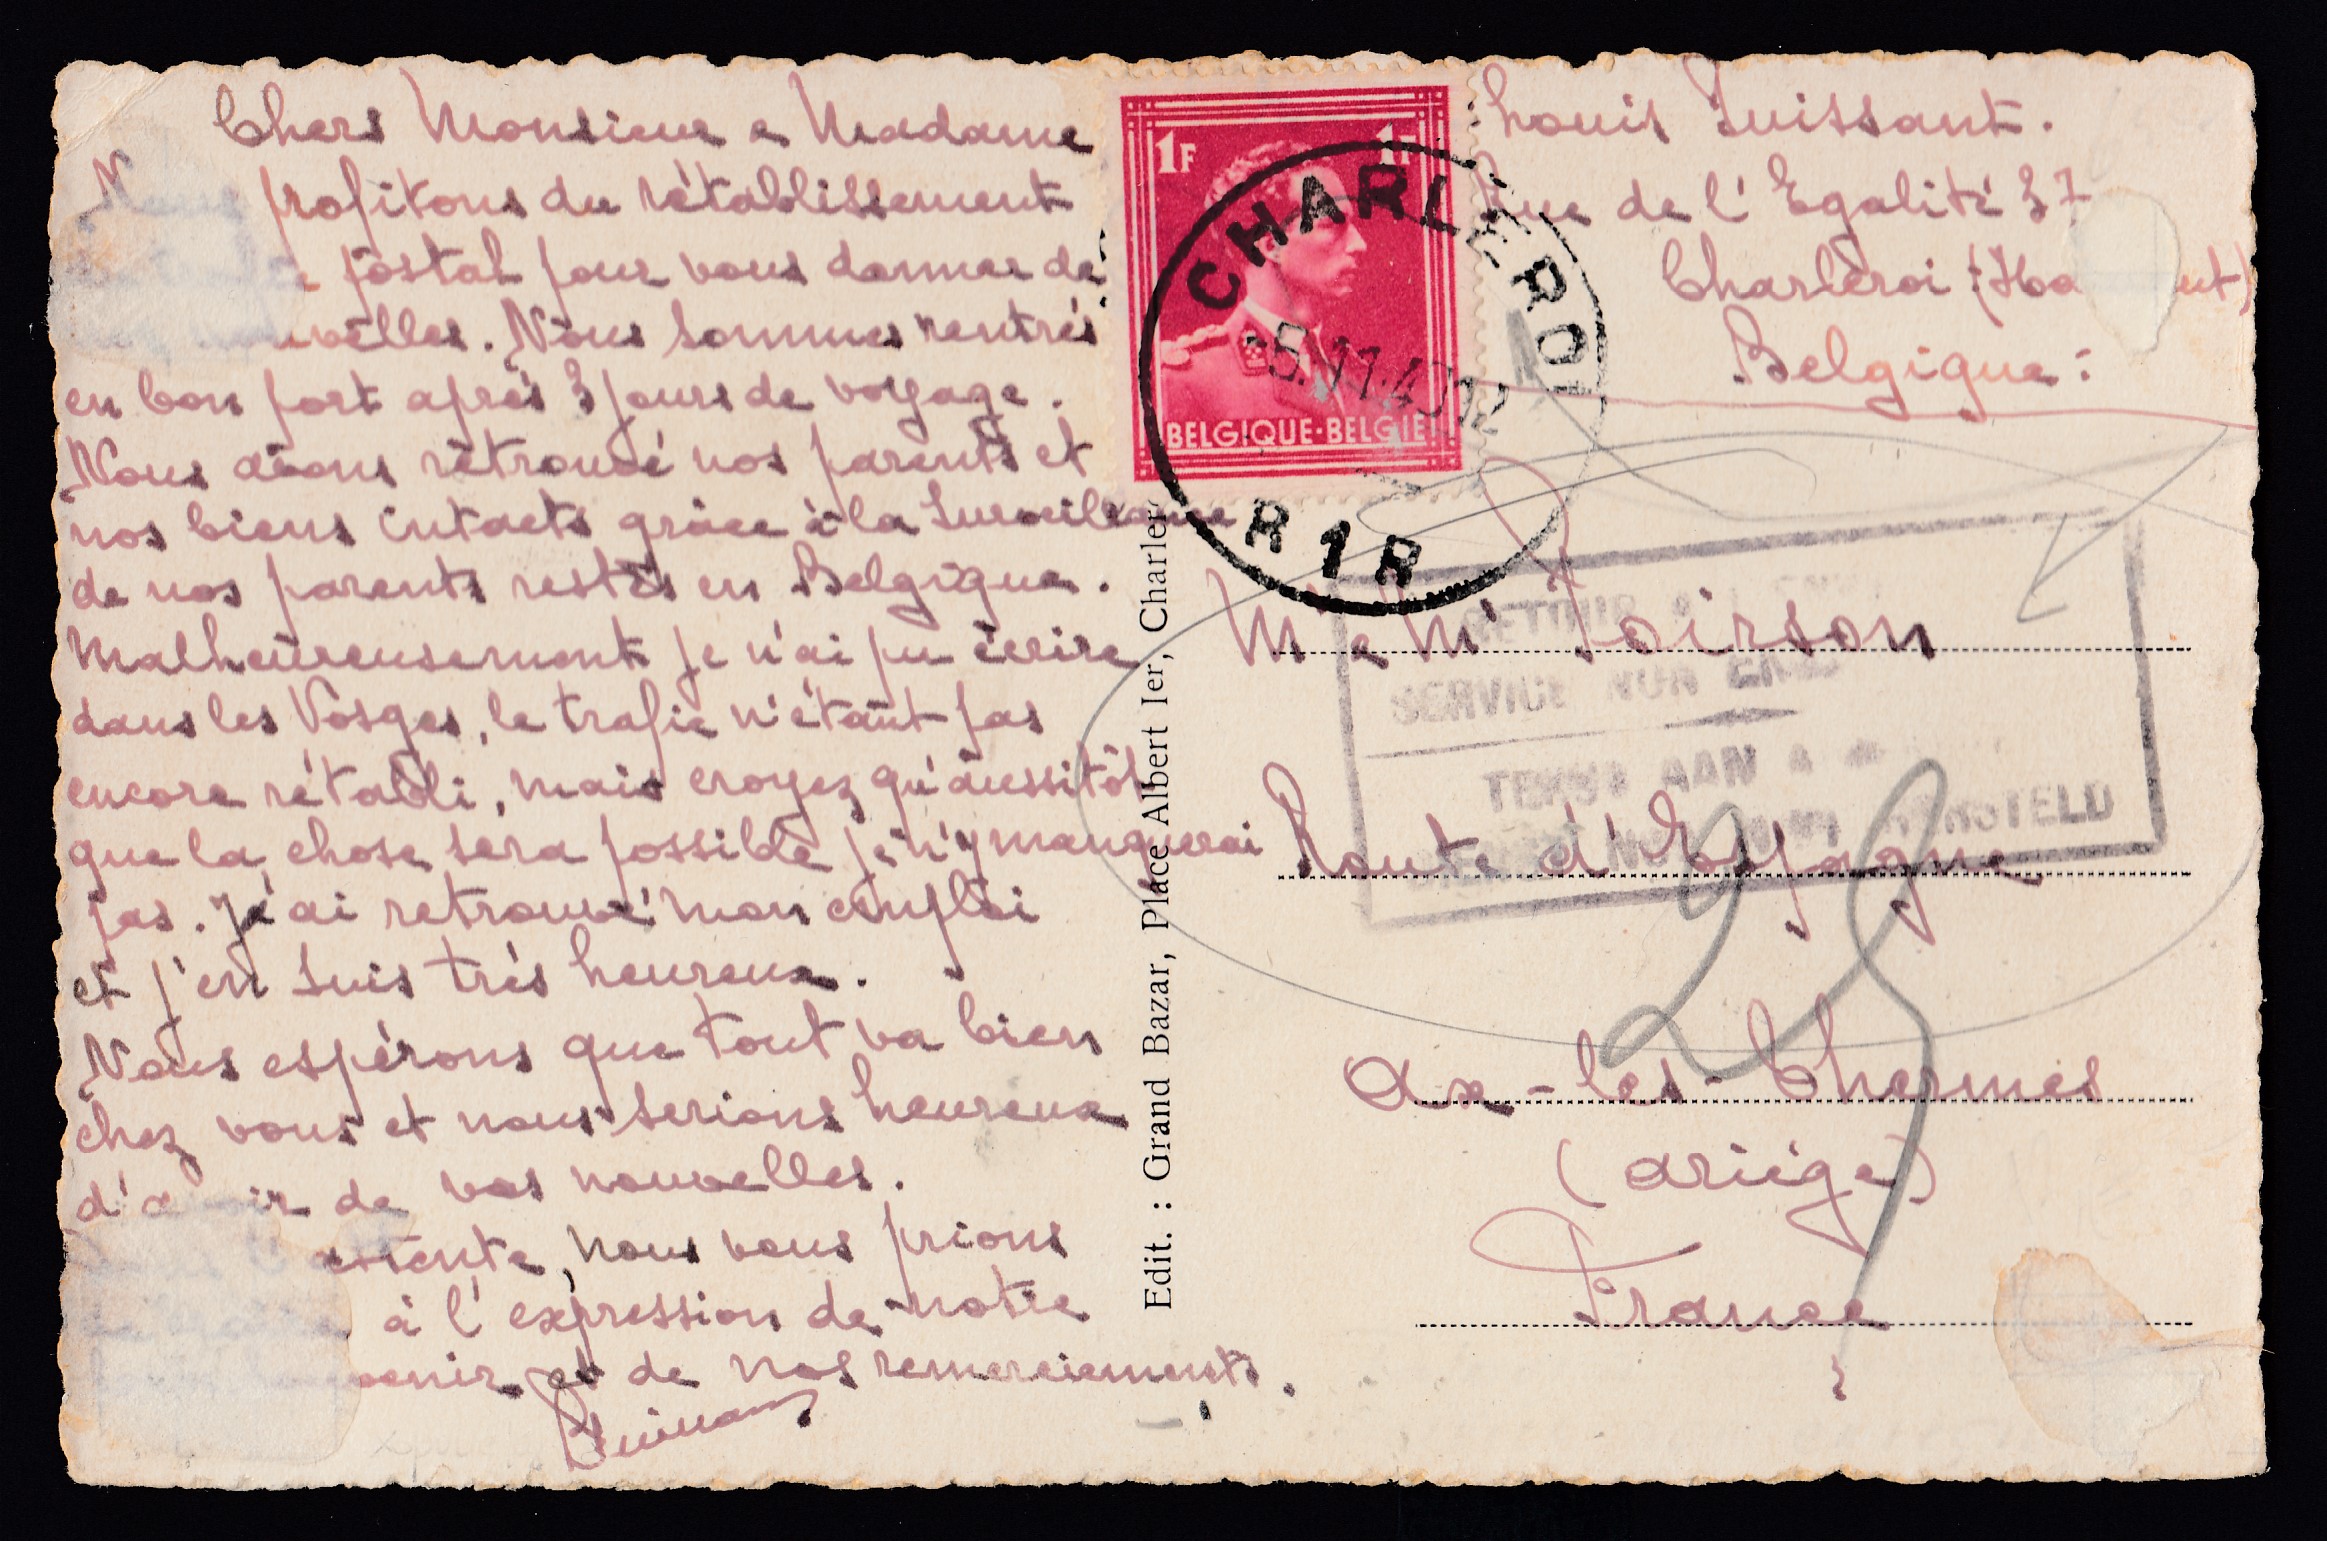 Chers Monsieur e Madame
Nous profitons du rétablissement
postal pour vous donner de
nouvelles. Nous sommes rentrés
en bon port après 3 jours de voyage.
Nous avons retrouvé nos parents et
nos biens intacts grâce à la surveillance
de nos parents restés en Belgique.
Malheureusement je n'ai pu écrire
dans les Vosges, le trafic n'étant pas
encore rétabli, mais croyez qu'aussitôt
que la chose sera possible je n'y manquerai
pas. J'ai retrouvé mon emploi
et j'en suis très heureux.
Nous espérons que tout va bien
chez vous et nous serions heureux
d'avoir de vos nouvelles.
attente, nous vous prions
à l'expression de notre
venir et de nos remerciements.
Edit. : Grand Bazar, Place Albert Ier, Charleroi
1F 1F
BELGIQUE-BELGIË
CHARLEROI
R1R
Louis Puissant.
Rue de l'Egalité 37
Charleroi (Ha ut)
Belgique :
RETOUR A
SERVICE NON
TERUG AAN
HERSTELD
Mr e Me Poirson
Route d'Espagne
Ax-les-Thermes
(Ariège)
France